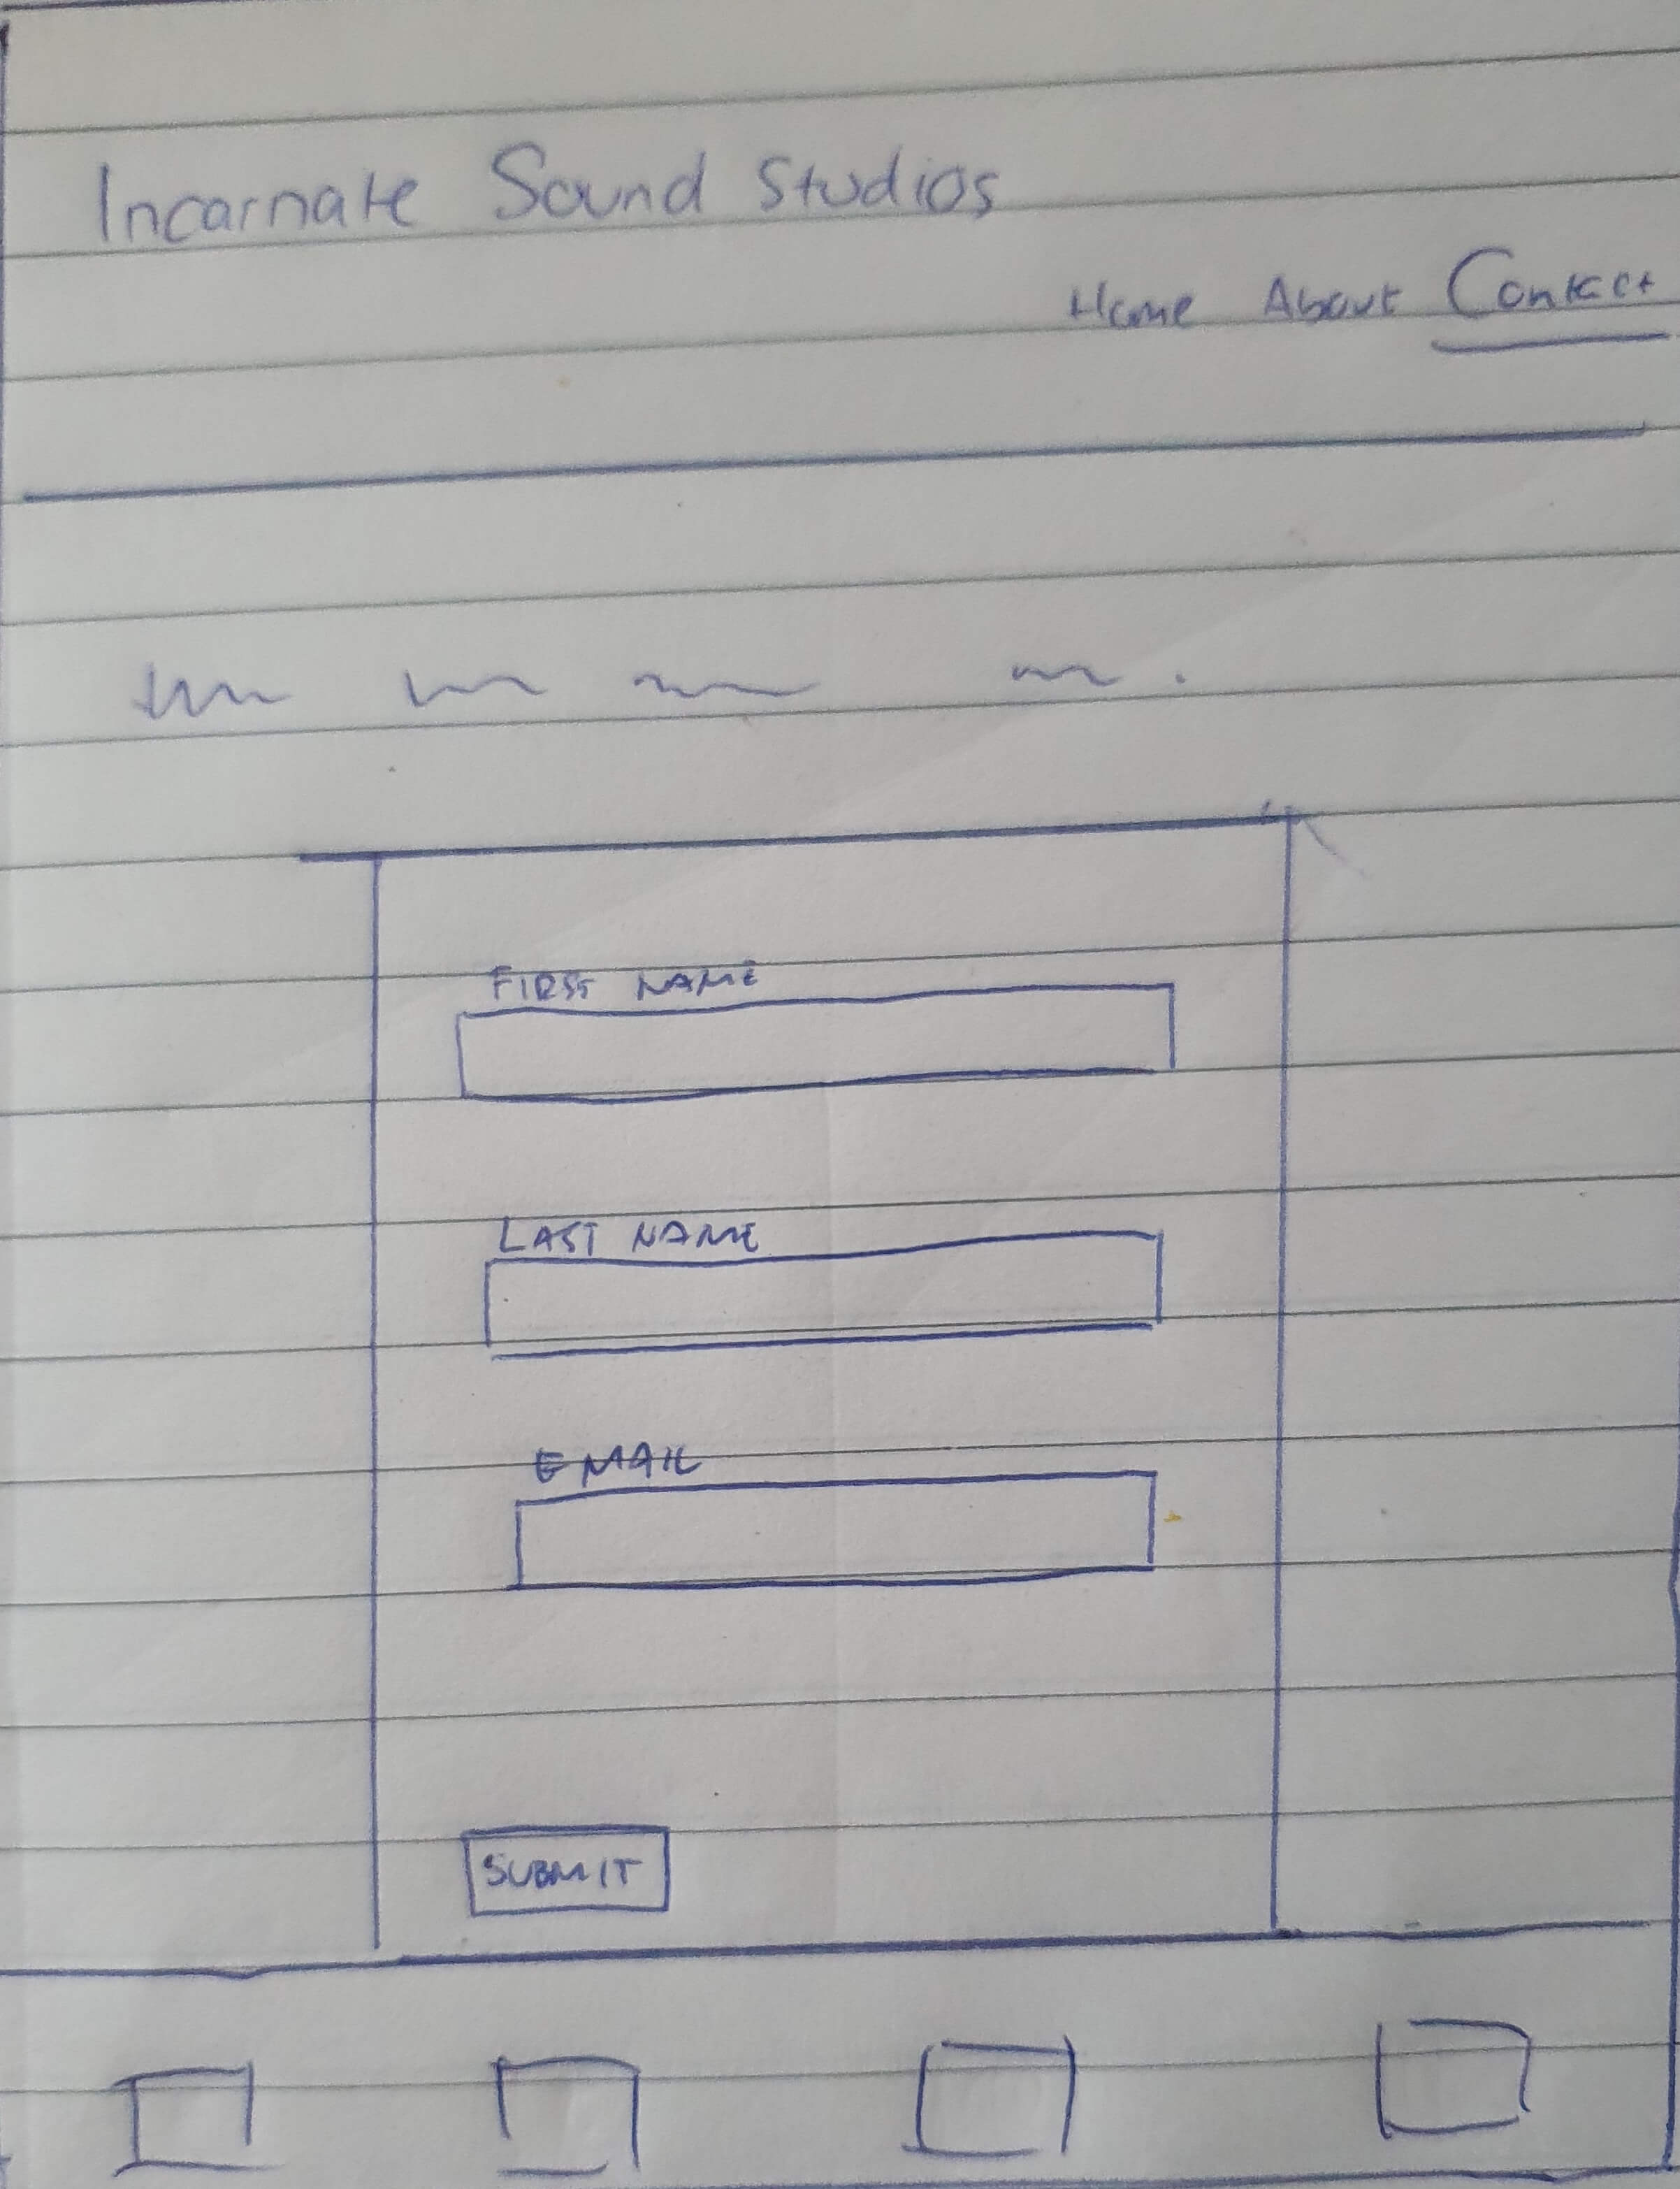 Incarnate Sound Studios
Home About Contact
FIRST NAME
LAST NAME
EMAIL
SUBMIT